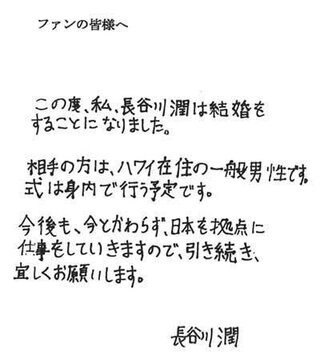 ファンの皆様へ
この度、私、長谷川潤は結婚を
することになりました。
相手の方は、ハワイ在住の一般男性です。
式は身内で行う予定です。
今後も、今とかわらず、日本を拠点に
仕事をしていきますので、引き続き、
宜しくお願いします。
長谷川潤